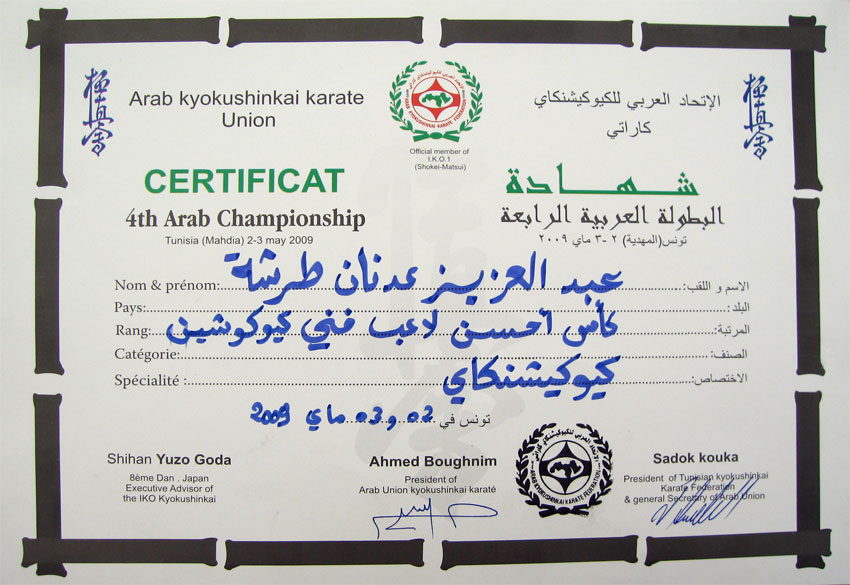 極真会
極真会
Arab kyokushinkai karate
Union
الإتحاد العربي للكيوكيشنكاي
كاراتي
Official member of
I.K.O.1
(Shokei-Matsui)
CERTIFICAT
شهادة
4th Arab Championship
البطولة العربية الرابعة
Tunisia (Mahdia) 2-3 may 2009
تونس(المهدية) ٢-٣ ماي ٢٠٠٩
Nom & prénom: عبد العزيز عدنان طرشة الاسم و اللقب:
Pays: البلد:
Rang: كأس أحسن لاعب فني كيوكوشين المرتبة:
Catégorie: الصنف:
Spécialité : كيوكيشنكاي الاختصاص:
تونس في 02 و 03 ماي 2009
Shihan Yuzo Goda
8ème Dan . Japan
Executive Advisor of
the IKO Kyokushinkai
Ahmed Boughnim
President of
Arab Union kyokushinkai karaté
ARAB KYOKUSHINKAI KARATE FEDERATION
الإتحاد العربي للكيوكيشنكاي كاراتي
Sadok kouka
President of Tunisian kyokushinkai
Karaté Federation
& general Secretary of Arab Union